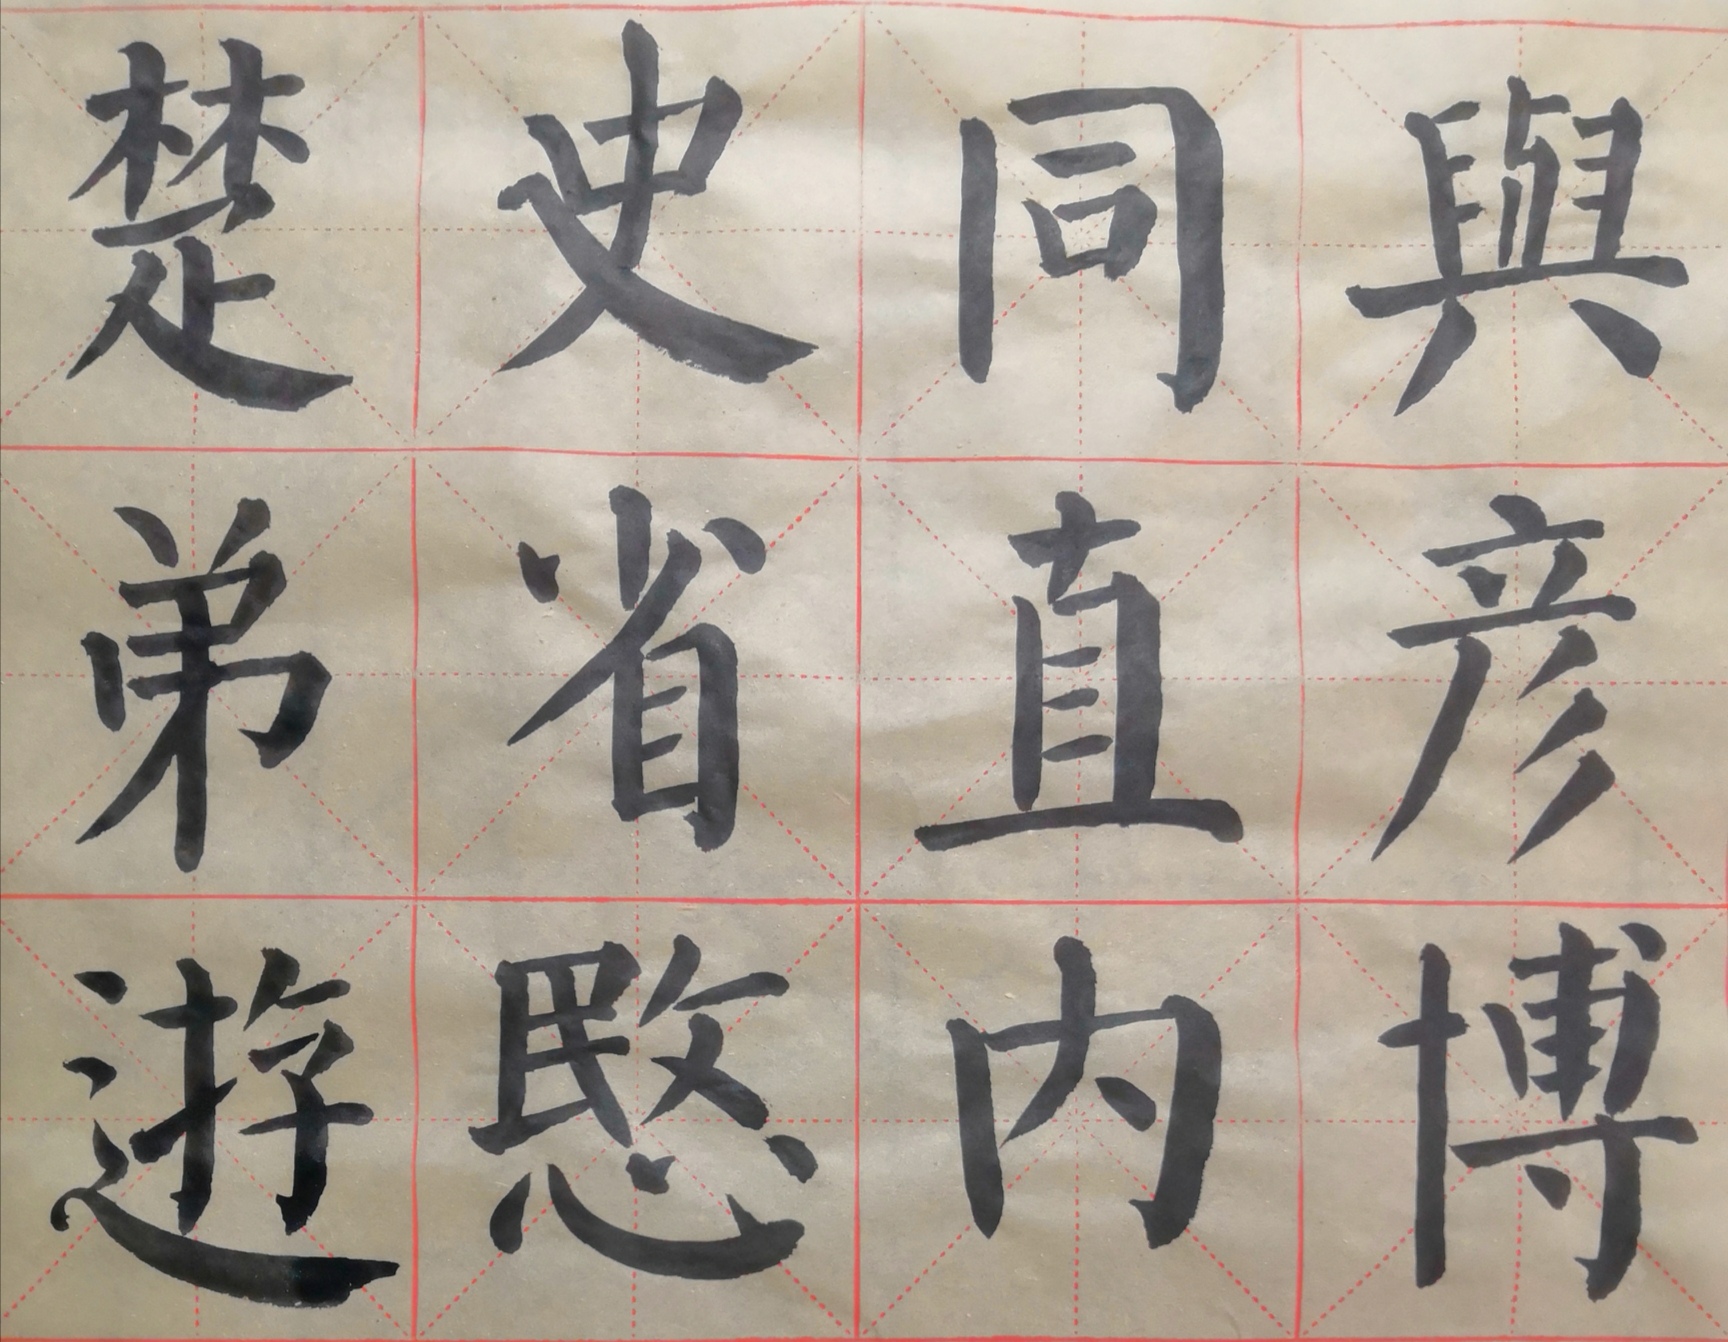 與彦博
同直内
史省愍
楚弟遊